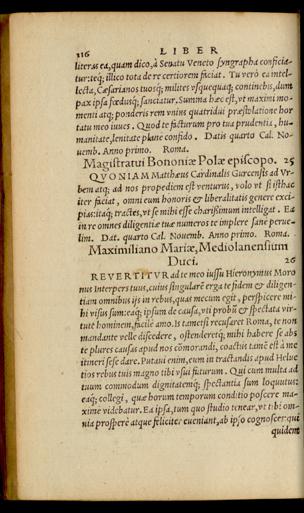 116 LIBER
literas ea, quam dico, à Senatu Veneto syngrapha conficia-
tur: teq; illico tota de re certiorem faciat. Tu verò ea intel-
lecta, Cæsarianos tuosq; milites vsquequaq; continebis, dum
pax ipsa fœdusq; sanciatur. Summa hæc est, vt maximi mo-
menti atq; ponderis rem vnius quatridui præstolatione hor-
tatu meo iuues. Quod te facturum pro tua prudentia, hu-
manitate, lenitate planè confido. Datis quarto Cal. No-
uemb. Anno primo. Roma.
Magistratui Bononiæ Polæ episcopo. 25
QVONIAM Matthæus Cardinalis Gurcensis ad Vr-
bem atq; ad nos propediem est venturus, volo vt si isthac
iter faciat, omni eum honoris & liberalitatis genere exci-
pias: itaq; tractes, vt se mihi esse charissimum intelligat. Ea
in re omnes diligentiæ tuæ numeros te implere sane peruc-
lim. Dat. quarto Cal. Nouemb. Anno primo. Roma.
Maximiliano Mariæ, Mediolanensium
Duci. 26
REVERTITVR ad te meo iussu Hieronymus Moro
nus Interpres tuus, cuius singularẽ erga te fidem & diligen-
tiam omnibus ijs in rebus, quas mecum egit, perspicere mi-
hi visus sum: eaq; ipsum de causa, vti probũ & spectata vir-
tute hominem, facile amo. Is tametsi recusaret Roma, te non
mandante velle discedere, ostenderetq; mihi habere se abs
te plures causas apud nos cõmorandi, coactus tamẽ est à me
itineri sese dare. Putaui enim, eum in tractandis apud Helue
tios rebus tuis magno tibi vsui futurum. Qui cum multa ad
tuum commodum dignitatemq; spectantia sum loquutus
eaq; collegi, quæ horum temporum conditio poscere ma-
ximè videbatur. Ea ipsa, tum quo studio tenear, vt tibi om-
nia prosperè atque feliciter eueniant, ab ipso cognosces: qui
quidem